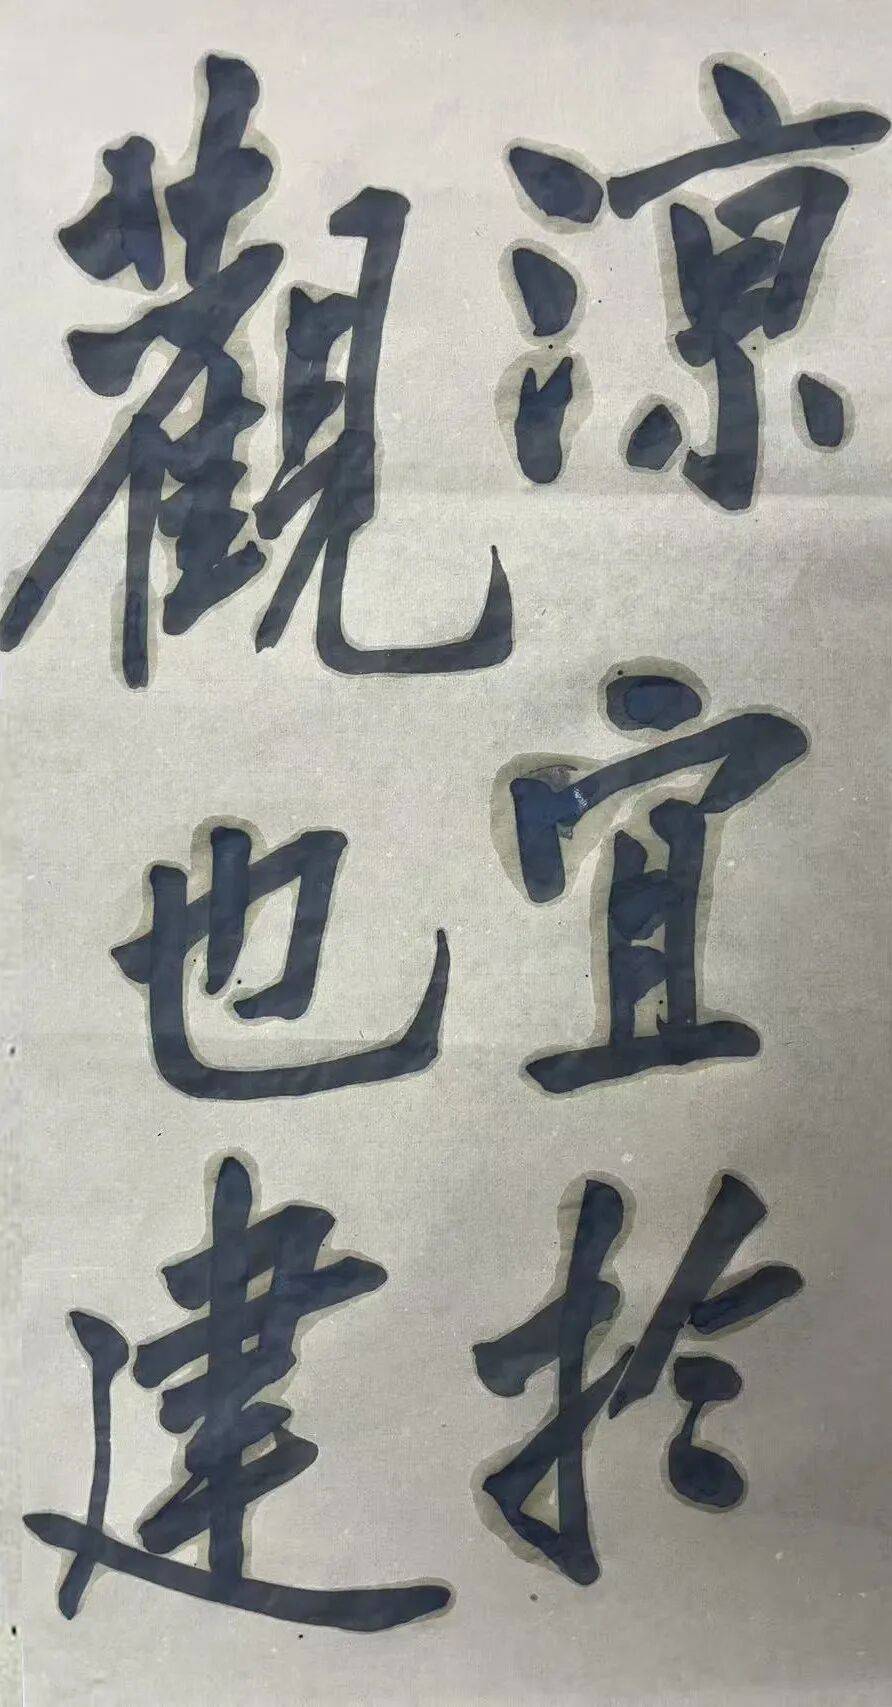 涼宜於
觀也建